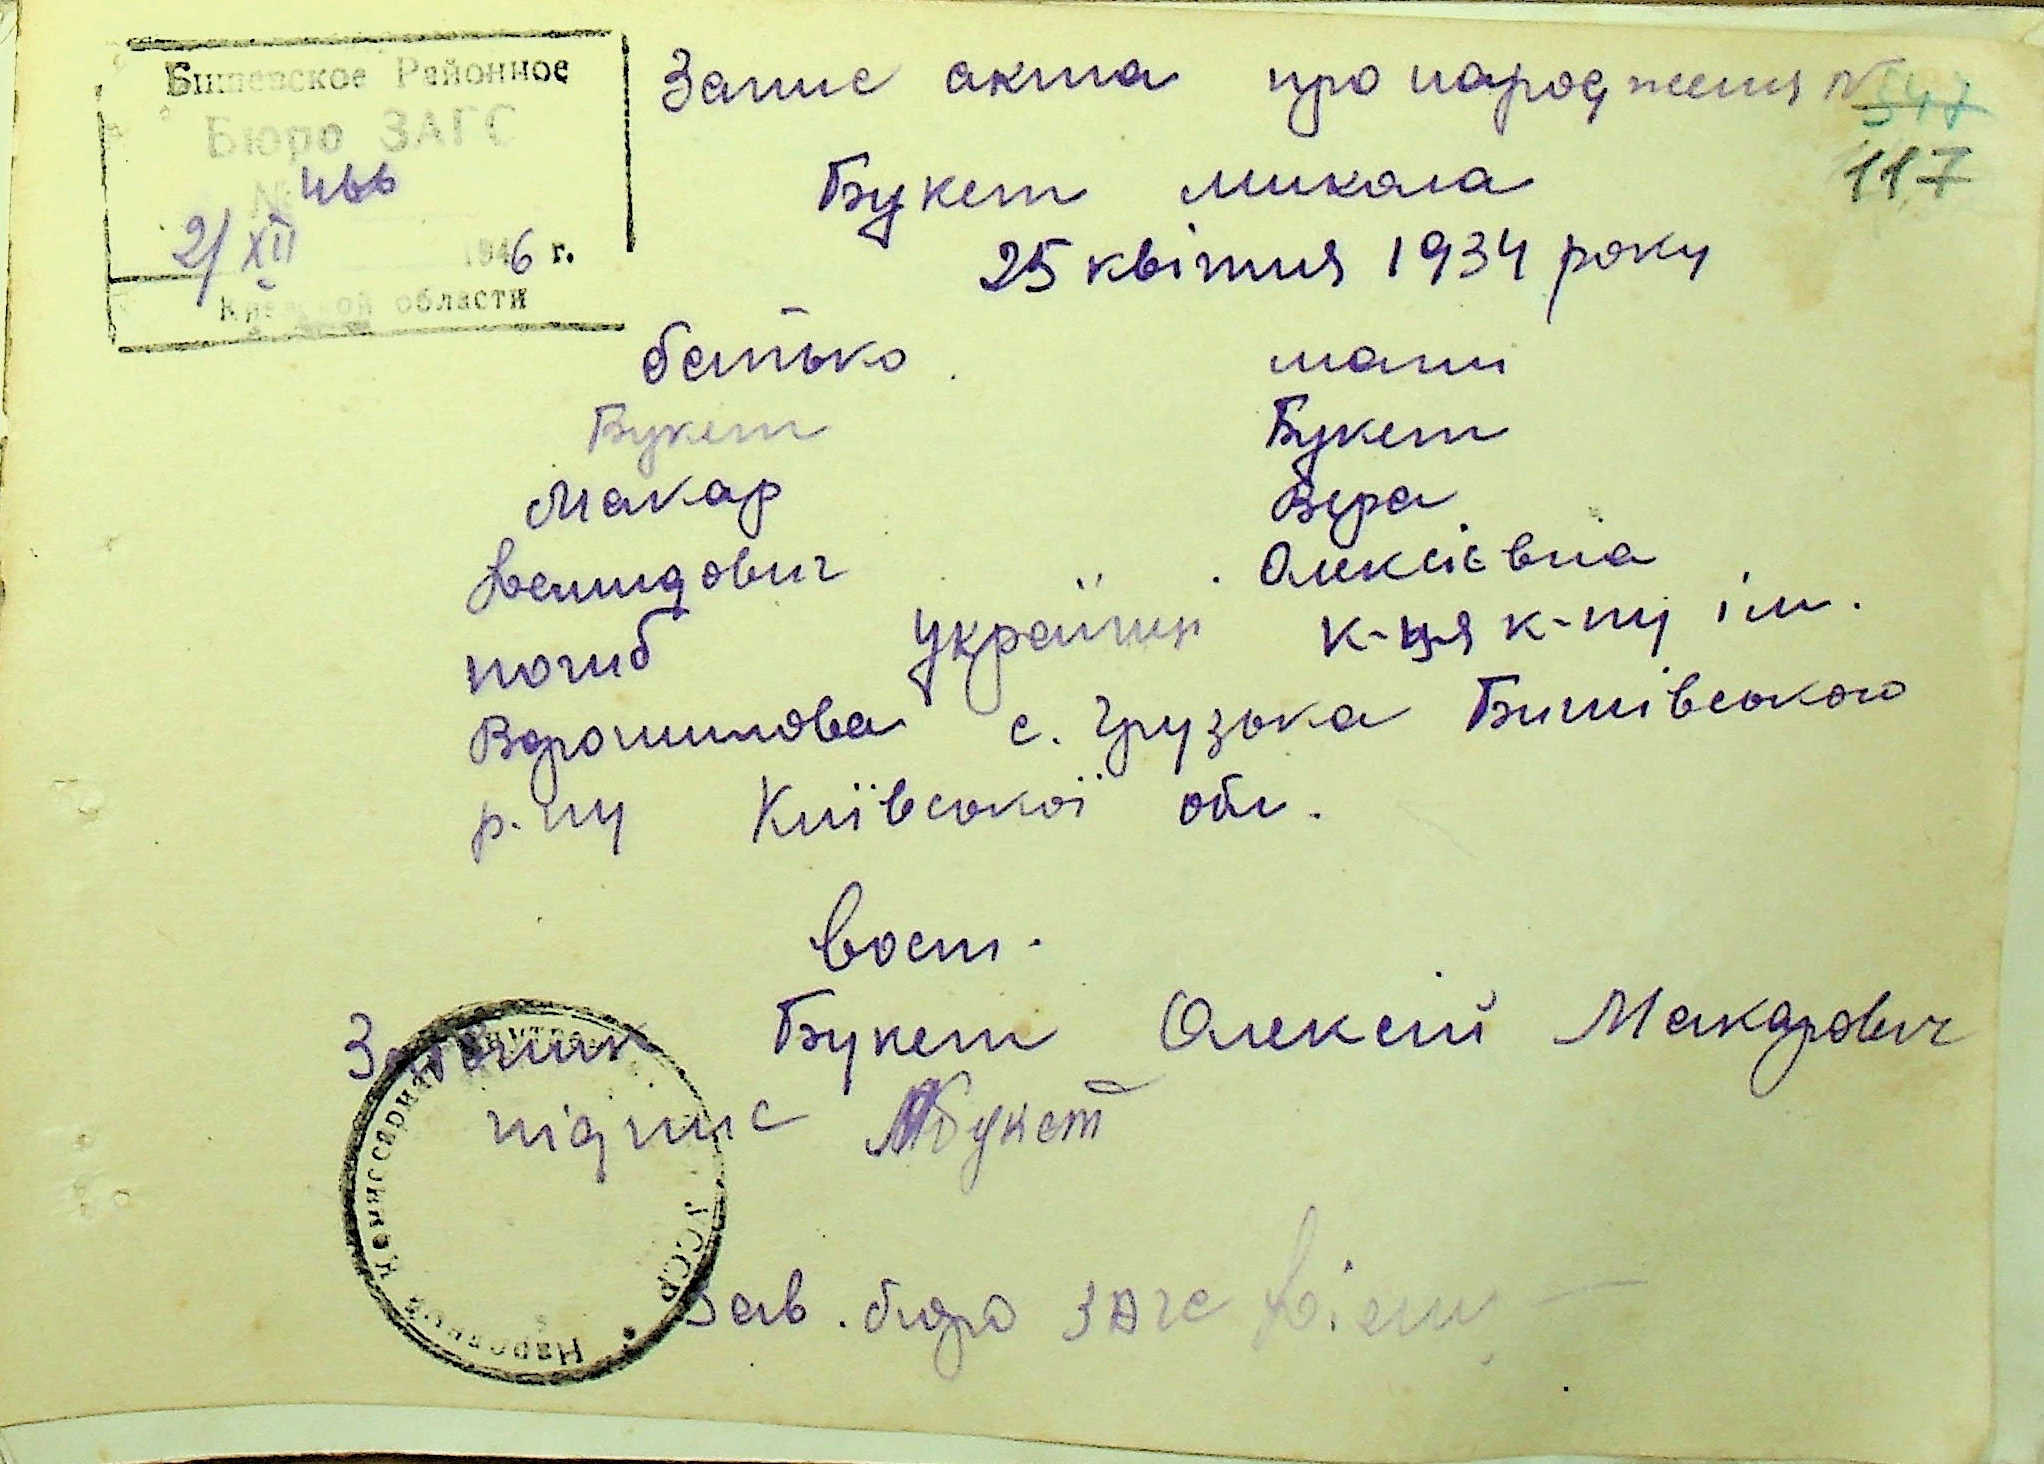 Бишевское Районное
Бюро ЗАГС
№ 466
21/XII 1946 г.
Киевской области
Запис акта про народження № 547
117
Букет микола
25 квітня 1934 року
батько мати
Букет Букет
Макар Віра
Демидович Олексієвна
погиб українці к-ця к-пу ім.
Ворошилова с. Грузька Бишівського
р-ну Київської обл.
вост.
Заявник Букет Олексій Макарович
підпис Букет
Зав. бюро ЗАГС
Народный Комиссариат УССР